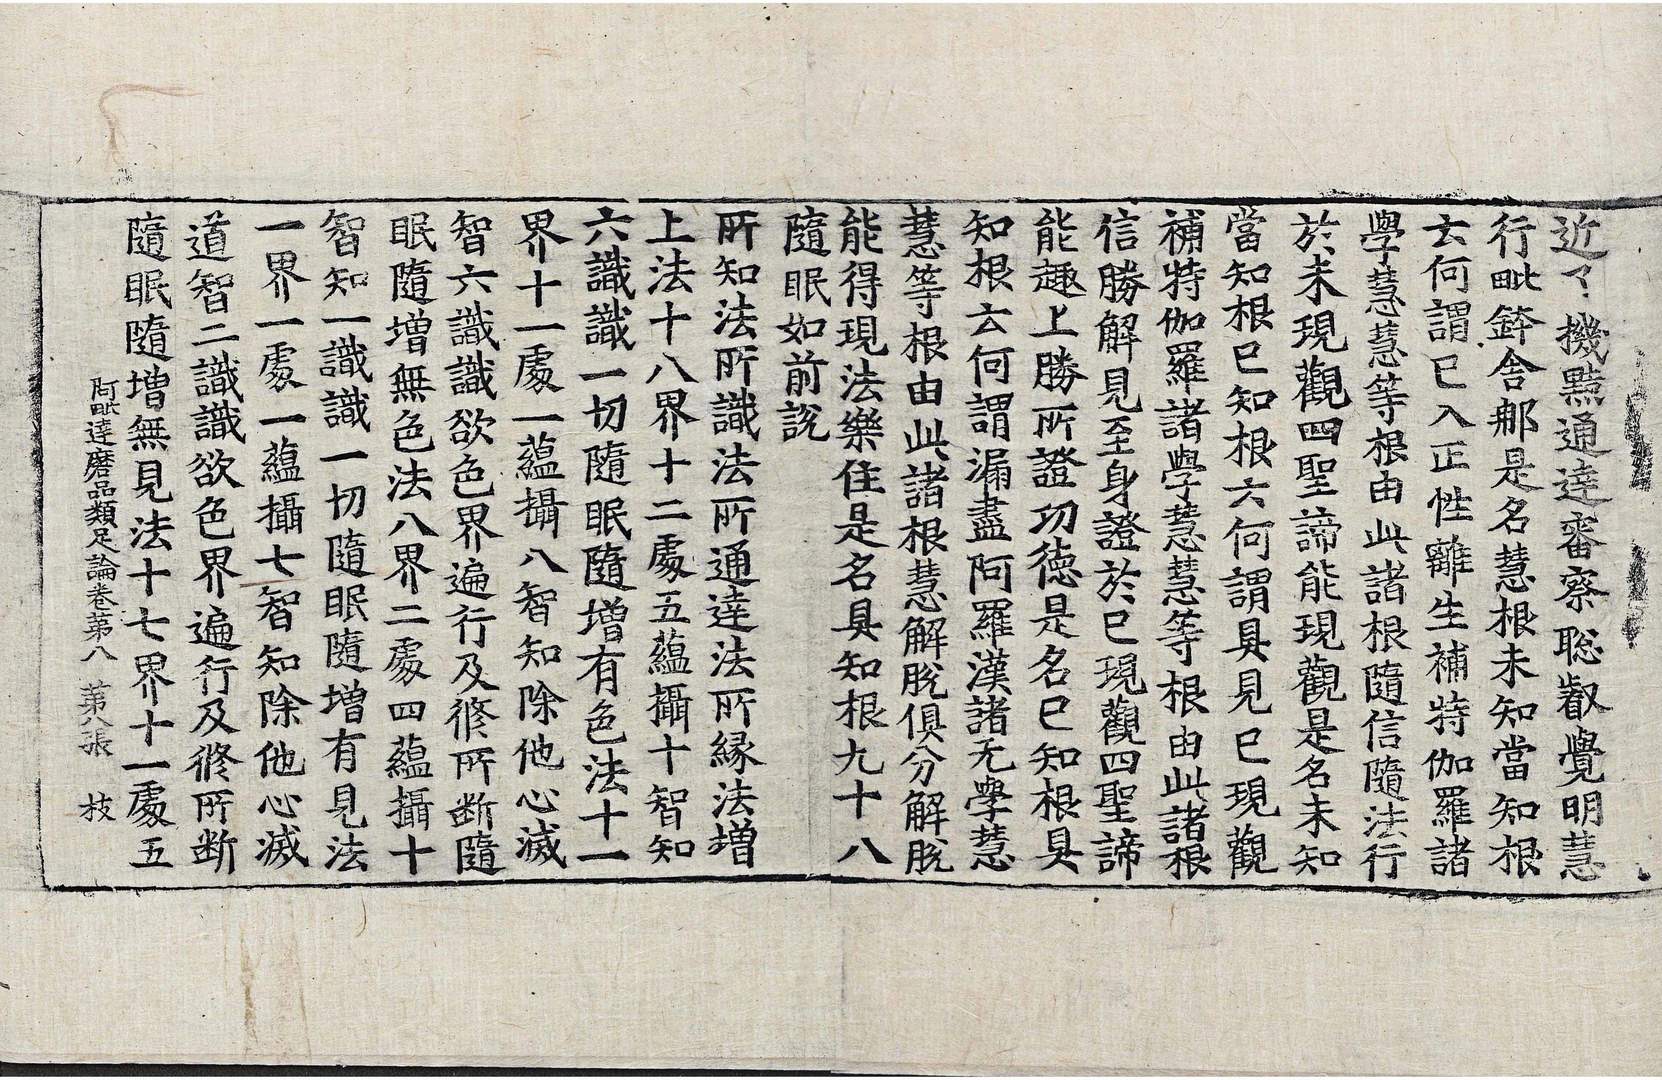 近了機黠通達審察聡叡覺明慧
行毗鉢舍那是名慧根未知當知根
云何謂已入正性離生補特伽羅諸
學慧慧等根由此諸根隨信隨法行
於未現觀四聖諦能現觀是名未知
當知根已知根云何謂具見已現觀
補特伽羅諸學慧慧等根由此諸根
信勝解見至身證於已現觀四聖諦
能趣上勝所證功德是名已知根具
知根云何謂漏盡阿羅漢諸无學慧
慧等根由此諸根慧解脫俱分解脫
能得現法樂住是名具知根九十八
隨眠如前說
所知法所識法所通達法所縁法增
上法十八界十二處五蘊攝十智知
六識識一切隨眠隨增有色法十一
界十一處一蘊攝八智知除他心滅
智六識識欲色界遍行及修所斷隨
眠隨增無色法八界二處四蘊攝十
智知一識識一切隨眠隨增有見法
一界一處一蘊攝七智知除他心滅
道智二識識欲色界遍行及修所斷
隨眠隨增無見法十七界十一處五
阿毗達磨品類足論卷第八 第八張 枝